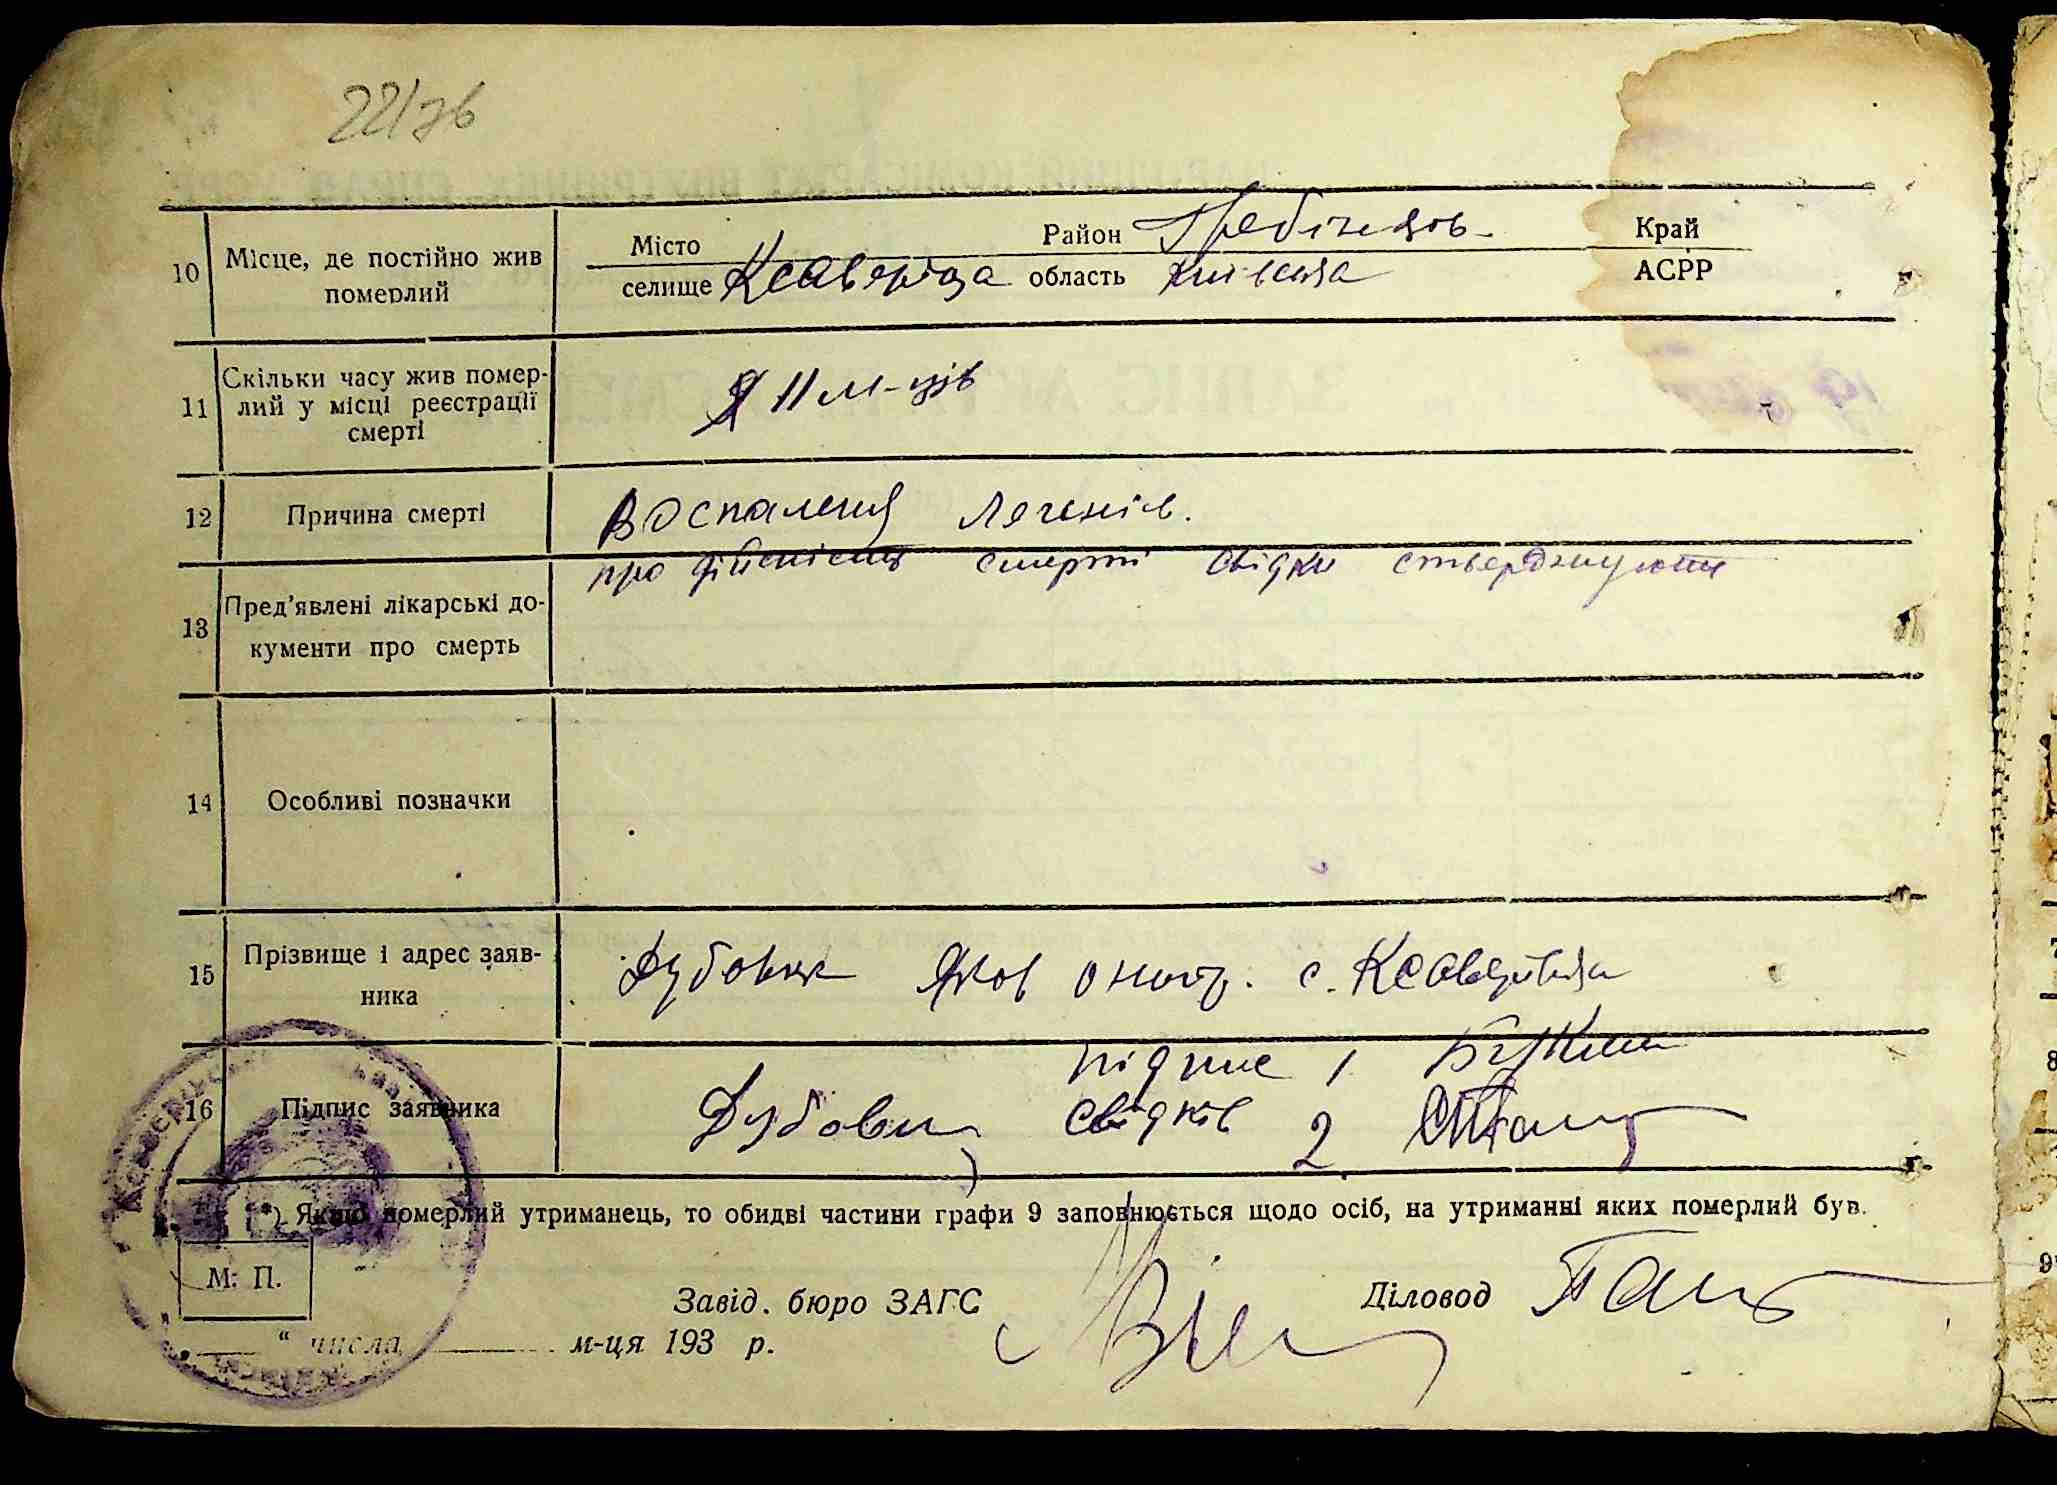 22/зв
10 Місце, де постійно жив померлий
Місто Район Гребінков. Край
селище Ксаверівка область Київська АСРР
11 Скільки часу жив померлий у місці реєстрації смерті
11 м-ців
12 Причина смерті
Воспаленя легенів.
про дійсність смерті свідки стверджують
13 Пред'явлені лікарські документи про смерть
14 Особливі позначки
15 Прізвище і адрес заявника
Дубовик Яков с. Ксаверівка
підпис 1
16 Підпис заявника
Дубовик свідків 2
*) Якщо померлий утриманець, то обидві частини графи 9 заповнюється щодо осіб, на утриманні яких померлий був.
М. П.
Завід. бюро ЗАГС Діловод
„ “ числа м-ця 193 р.